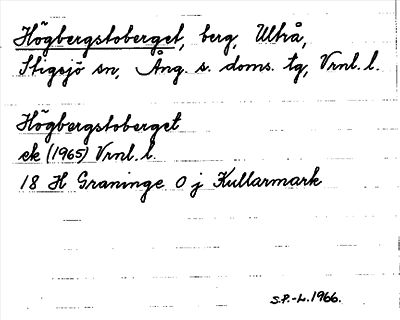 Högbergstoberget, berg, Ultrå,
Stigsjö sn, Ång. s. doms. tg, Vrnl. l.
Högbergstoberget
ek (1965) Vrnl. l.
18 H Graninge 0 j Kullarmark
S.P.-L. 1966.